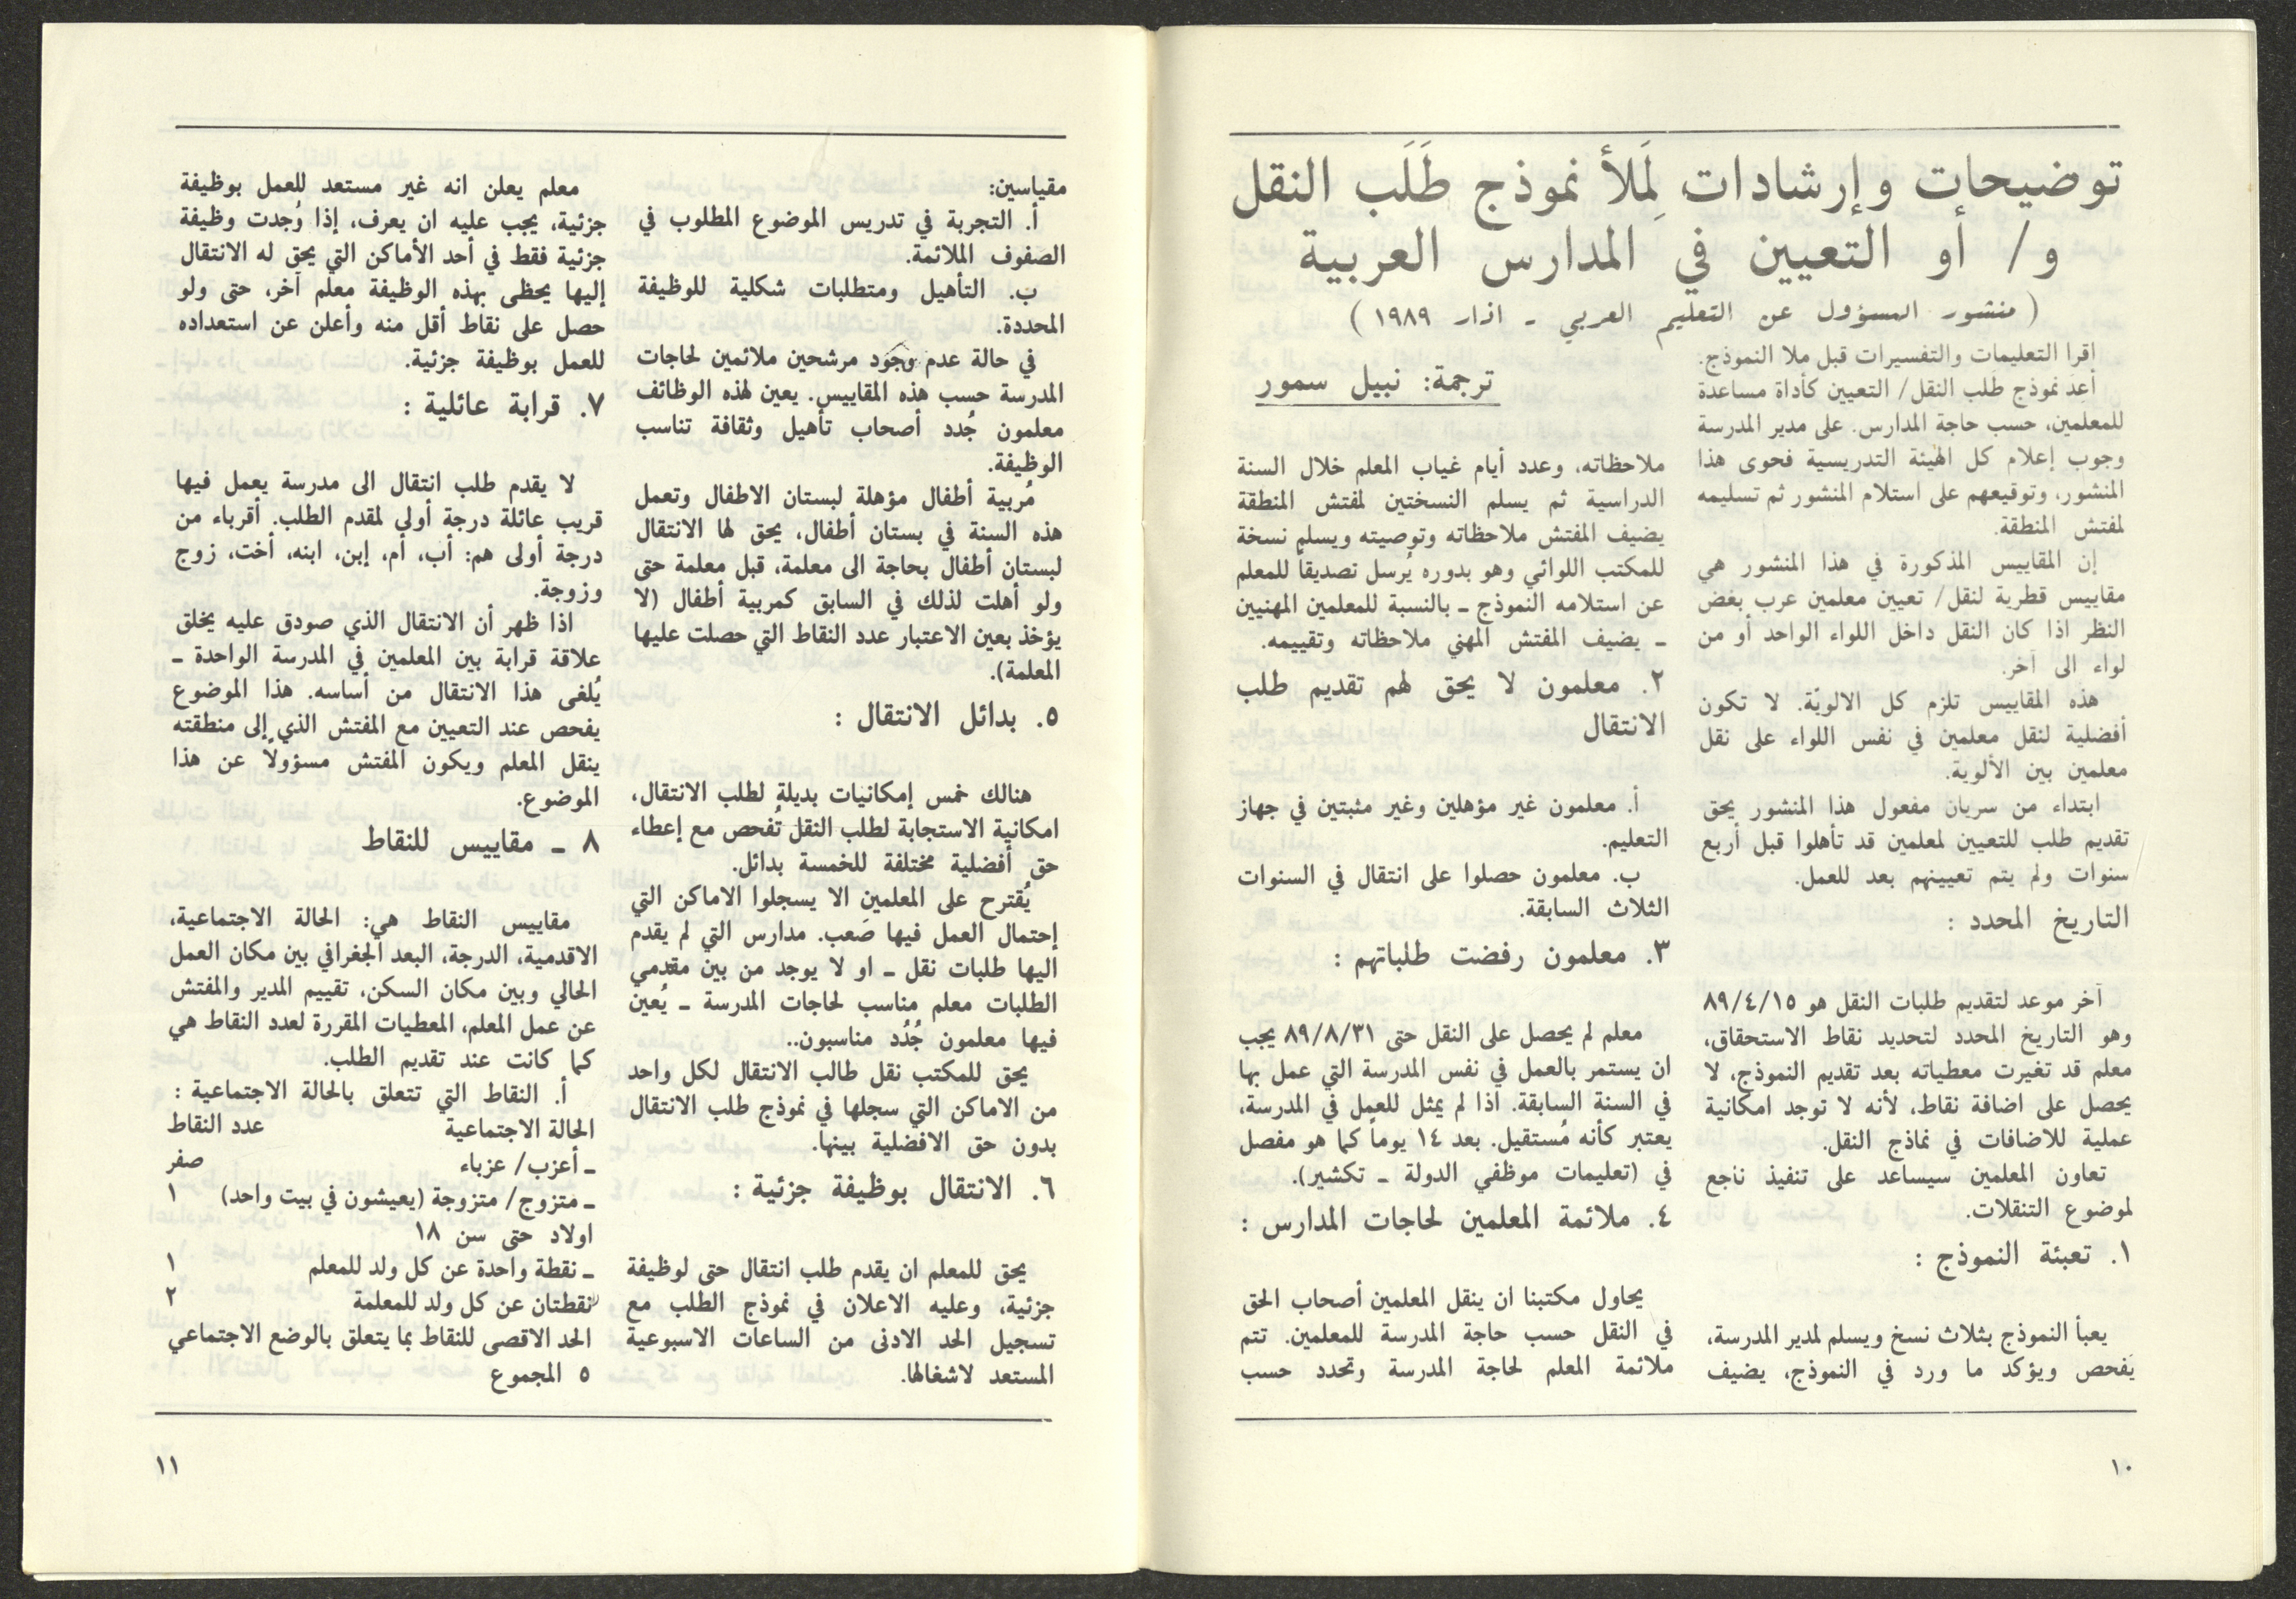 توضيحات وإرشادات لِمَلأ نموذج طَلَب النقل
و/ أو التعيين في المدارس العربية
(منشور المسؤول عن التعليم العربي ـ اذار ١٩٨٩)
ترجمة: نبيل سمور
إقرا التعليمات والتفسيرات قبل ملا النموذج.
أعِدَ نموذج طَلب النقل/ التعيين كأداة مساعدة
للمعلمين، حسب حاجة المدارس. على مدير المدرسة
وجوب إعلام كل الهيئة التدريسية فحوى هذا
المنشور، وتوقيعهم على استلام المنشور ثم تسليمه
لمفتش المنطقة.
إن المقاييس المذكورة في هذا المنشور هي
مقاييس قطرية لنقل/ تعيين معلمين عرب بغض
النظر اذا كان النقل داخل اللواء الواحد أو من
لواء الى آخر.
هذه المقاييس تلزم كل الالويّة. لا تكون
أفضلية لنقل معلمين في نفس اللواء على نقل
معلمين بين الألوية.
ابتداء من سريان مفعول هذا المنشور يحق
تقديم طلب للتعيين لمعلمين قد تأهلوا قبل أربع
سنوات ولم يتم تعيينهم بعد للعمل.
التاريخ المحدد :
آخر موعد لتقديم طلبات النقل هو ٨٩/٤/١٥
وهو التاريخ المحدد لتحديد نقاط الاستحقاق،
معلم قد تغيرت معطياته بعد تقديم النموذج، لا
يحصل على اضافة نقاط، لأنه لا توجد امكانية
عملية للاضافات في نماذج النقل.
تعاون المعلمين سيساعد على تنفيذ ناجع
لموضوع التنقلات.
١. تعبئة النموذج :
يعبأ النموذج بثلاث نسخ ويسلم لمدير المدرسة،
يَفحص ويؤكد ما ورد في النموذج، يضيف
ملاحظاته، وعدد أيام غياب المعلم خلال السنة
الدراسية ثم يسلم النسختين لمفتش المنطقة
يضيف المفتش ملاحظاته وتوصيته ويسلم نسخة
للمكتب اللوائي وهو بدوره يُرسل تصديقاً للمعلم
عن استلامه النموذج ـ بالنسبة للمعلمين المهنيين
ـ يضيف المفتش المهني ملاحظاته وتقييمه.
٢. معلمون لا يحق لهم تقديم طلب
الانتقال
أ. معلمون غير مؤهلين وغير مثبتين في جهاز
التعليم.
ب. معلمون حصلوا على انتقال في السنوات
الثلاث السابقة.
٣. معلمون رفضت طلباتهم :
معلم لم يحصل على النقل حتى ٨٩/٨/٣١ يجب
ان يستمر بالعمل في نفس المدرسة التي عمل بها
في السنة السابقة. اذا لم يمثل للعمل في المدرسة،
يعتبر كأنه مُستقيل. بعد ١٤ يوماً كما هو مفصل
في (تعليمات موظفي الدولة ـ تكشير).
٤. ملائمة المعلمين لحاجات المدارس :
يحاول مكتبنا ان ينقل المعلمين أصحاب الحق
في النقل حسب حاجة المدرسة للمعلمين. تتم
ملائمة المعلم لحاجة المدرسة وتحدد حسب
١٠
مقياسين:
أ. التجربة في تدريس الموضوع المطلوب في
الصفوف الملائمة.
ب. التأهيل ومتطلبات شكلية للوظيفة
المحددة.
في حالة عدم وجود مرشحين ملائمين لحاجات
المدرسة حسب هذه المقاييس. يعين لهذه الوظائف
معلمون جُدد أصحاب تأهيل وثقافة تناسب
الوظيفة.
مُربية أطفال مؤهلة لبستان الاطفال وتعمل
هذه السنة في بستان أطفال، يحق لها الانتقال
لبستان أطفال بحاجة الى معلمة، قبل معلمة حتى
ولو أهلت لذلك في السابق كمربية أطفال (لا
يؤخذ بعين الاعتبار عدد النقاط التي حصلت عليها
المعلمة).
٥. بدائل الانتقال :
هنالك خمس إمكانيات بديلة لطلب الانتقال،
امكانية الاستجابة لطلب النقل تُفحص مع إعطاء
حق أفضلية مختلفة للخمسة بدائل.
يُقترح على المعلمين الا يسجلوا الاماكن التي
إحتمال العمل فيها صَعب. مدارس التي لم يقدم
اليها طلبات نقل ـ او لا يوجد من بين مقدمي
الطلبات معلم مناسب لحاجات المدرسة ـ يُعين
فيها معلمون جُدُد مناسبون..
يحق للمكتب نقل طالب الانتقال لكل واحد
من الاماكن التي سجلها في نموذج طلب الانتقال
بدون حق الافضلية بينها.
٦. الانتقال بوظيفة جزئية :
يحق للمعلم ان يقدم طلب انتقال حتى لوظيفة
جزئية، وعليه الاعلان في نموذج الطلب مع
تسجيل الحد الادنى من الساعات الاسبوعية
المستعد لاشغالها.
معلم يعلن انه غير مستعد للعمل بوظيفة
جزئية، يجب عليه ان يعرف، إذا وُجدت وظيفة
جزئية فقط في أحد الأماكن التي يحق له الانتقال
إليها يحظى بهذه الوظيفة معلم آخر، حتى ولو
حصل على نقاط أقل منه وأعلن عن استعداده
للعمل بوظيفة جزئية.
٧. قرابة عائلية :
لا يقدم طلب انتقال الى مدرسة يعمل فيها
قريب عائلة درجة أولى لمقدم الطلب. أقرباء من
درجة أولى هم: أب، أم، إبن، ابنه، أخت، زوج
وزوجة.
اذا ظهر أن الانتقال الذي صودق عليه يخلق
علاقة قرابة بين المعلمين في المدرسة الواحدة ـ
يُلغى هذا الانتقال من أساسه. هذا الموضوع
يفحص عند التعيين مع المفتش الذي إلى منطقته
ينقل المعلم ويكون المفتش مسؤولاً عن هذا
الموضوع.
٨ ـ مقاييس للنقاط
مقاييس النقاط هي: الحالة الاجتماعية،
الاقدمية، الدرجة، البعد الجغرافي بين مكان العمل
الحالي وبين مكان السكن، تقييم المدير والمفتش
عن عمل المعلم، المعطيات المقررة لعدد النقاط هي
كما كانت عند تقديم الطلب.
أ. النقاط التي تتعلق بالحالة الاجتماعية :
الحالة الاجتماعية عدد النقاط
ـ أعزب/ عزباء صفر
ـ متزوج/ متزوجة (يعيشون في بيت واحد) ١
اولاد حتى سن ١٨
ـ نقطة واحدة عن كل ولد للمعلم ١
نقطتان عن كل ولد للمعلمة ٢
الحد الاقصى للنقاط بما يتعلق بالوضع الاجتماعي
٥ المجموع
١١